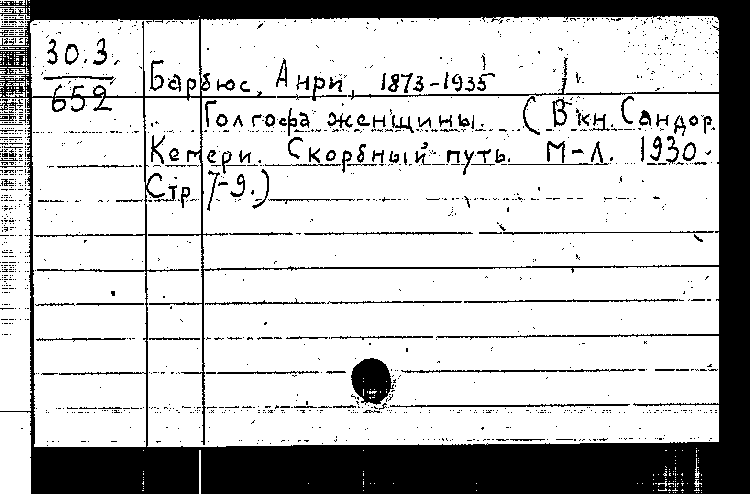 30.3.
652
Барбюс, Анри, 1873-1935
Голгофа женщины. (В кн. Сандор.
Кемери. Скорбный путь. М-Л. 1930.
Стр. 7-9.)